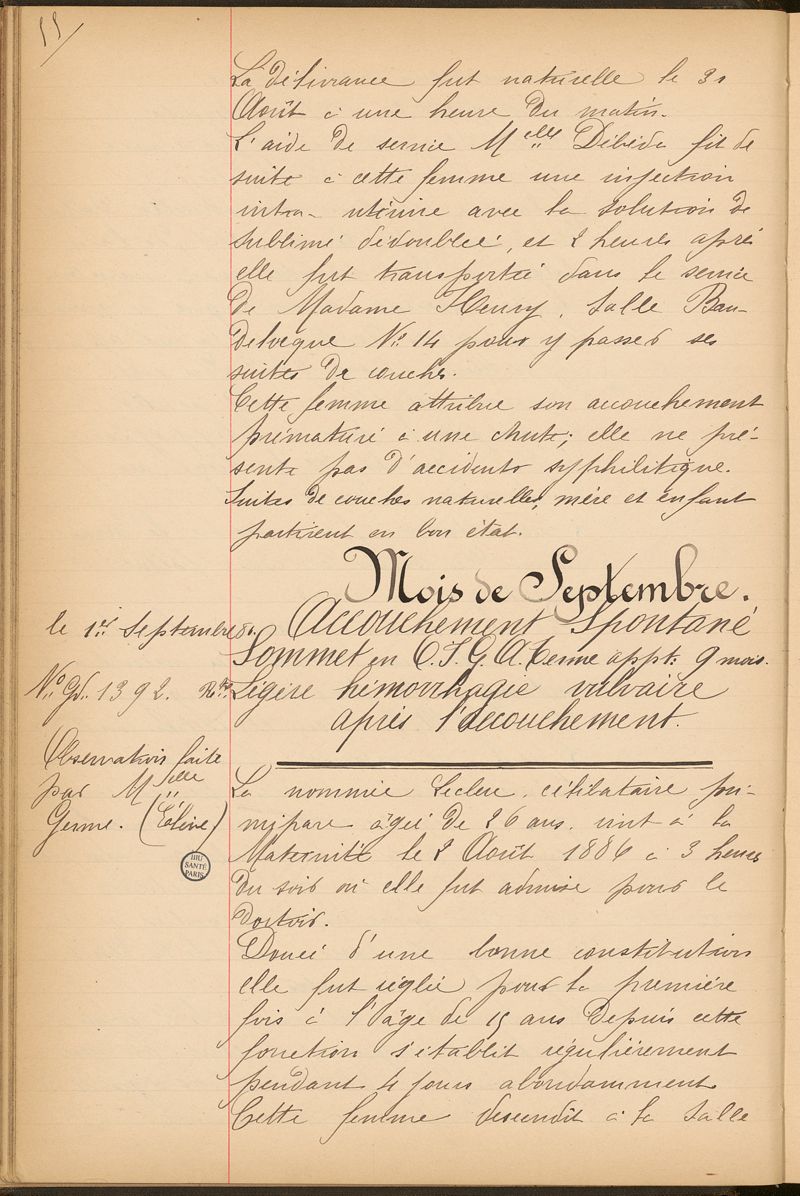 55
La délivrance fut naturelle le 31
Août à une heure du matin.
L'aide de service Melle Débéda fit de
suite à cette femme une injection
intra-utérine avec la solution de
sublimé dédoublée, et 2 heures après
elle fut transportée dans le service
de Madame Henry, salle Bau-
delocque No. 14 pour y passer ses
suites de couches.
Cette femme attribue son accouchement
prématuré à une chute; elle ne pré-
sente pas d'accidents syphilitique.
Suites de couches naturelles, mère et enfant
partirent en bon état.
Mois de Septembre.
le 1er Septembre
Accouchement Spontané
Sommet en O.I.G.A. terme appt: 9 mois.
No. Gd. 1392.
Légère hémorrhagie vulvaire
après l'accouchement.
Observation faite
par Melle
Germe. (Elève)
BIU
SANTÉ
PARIS
La nommée Leclerc, célibataire pri-
mipare âgée de 26 ans. vint à la
Maternité le 2 Août 1886 à 3 heures
du soir où elle fut admise pour le
dortoir.
Douée d'une bonne constitution
elle fut réglée pour la première
fois à l'âge de 15 ans depuis cette
fonction s'établit régulièrement
pendant 4 jours abondamment
Cette femme descendit à la salle